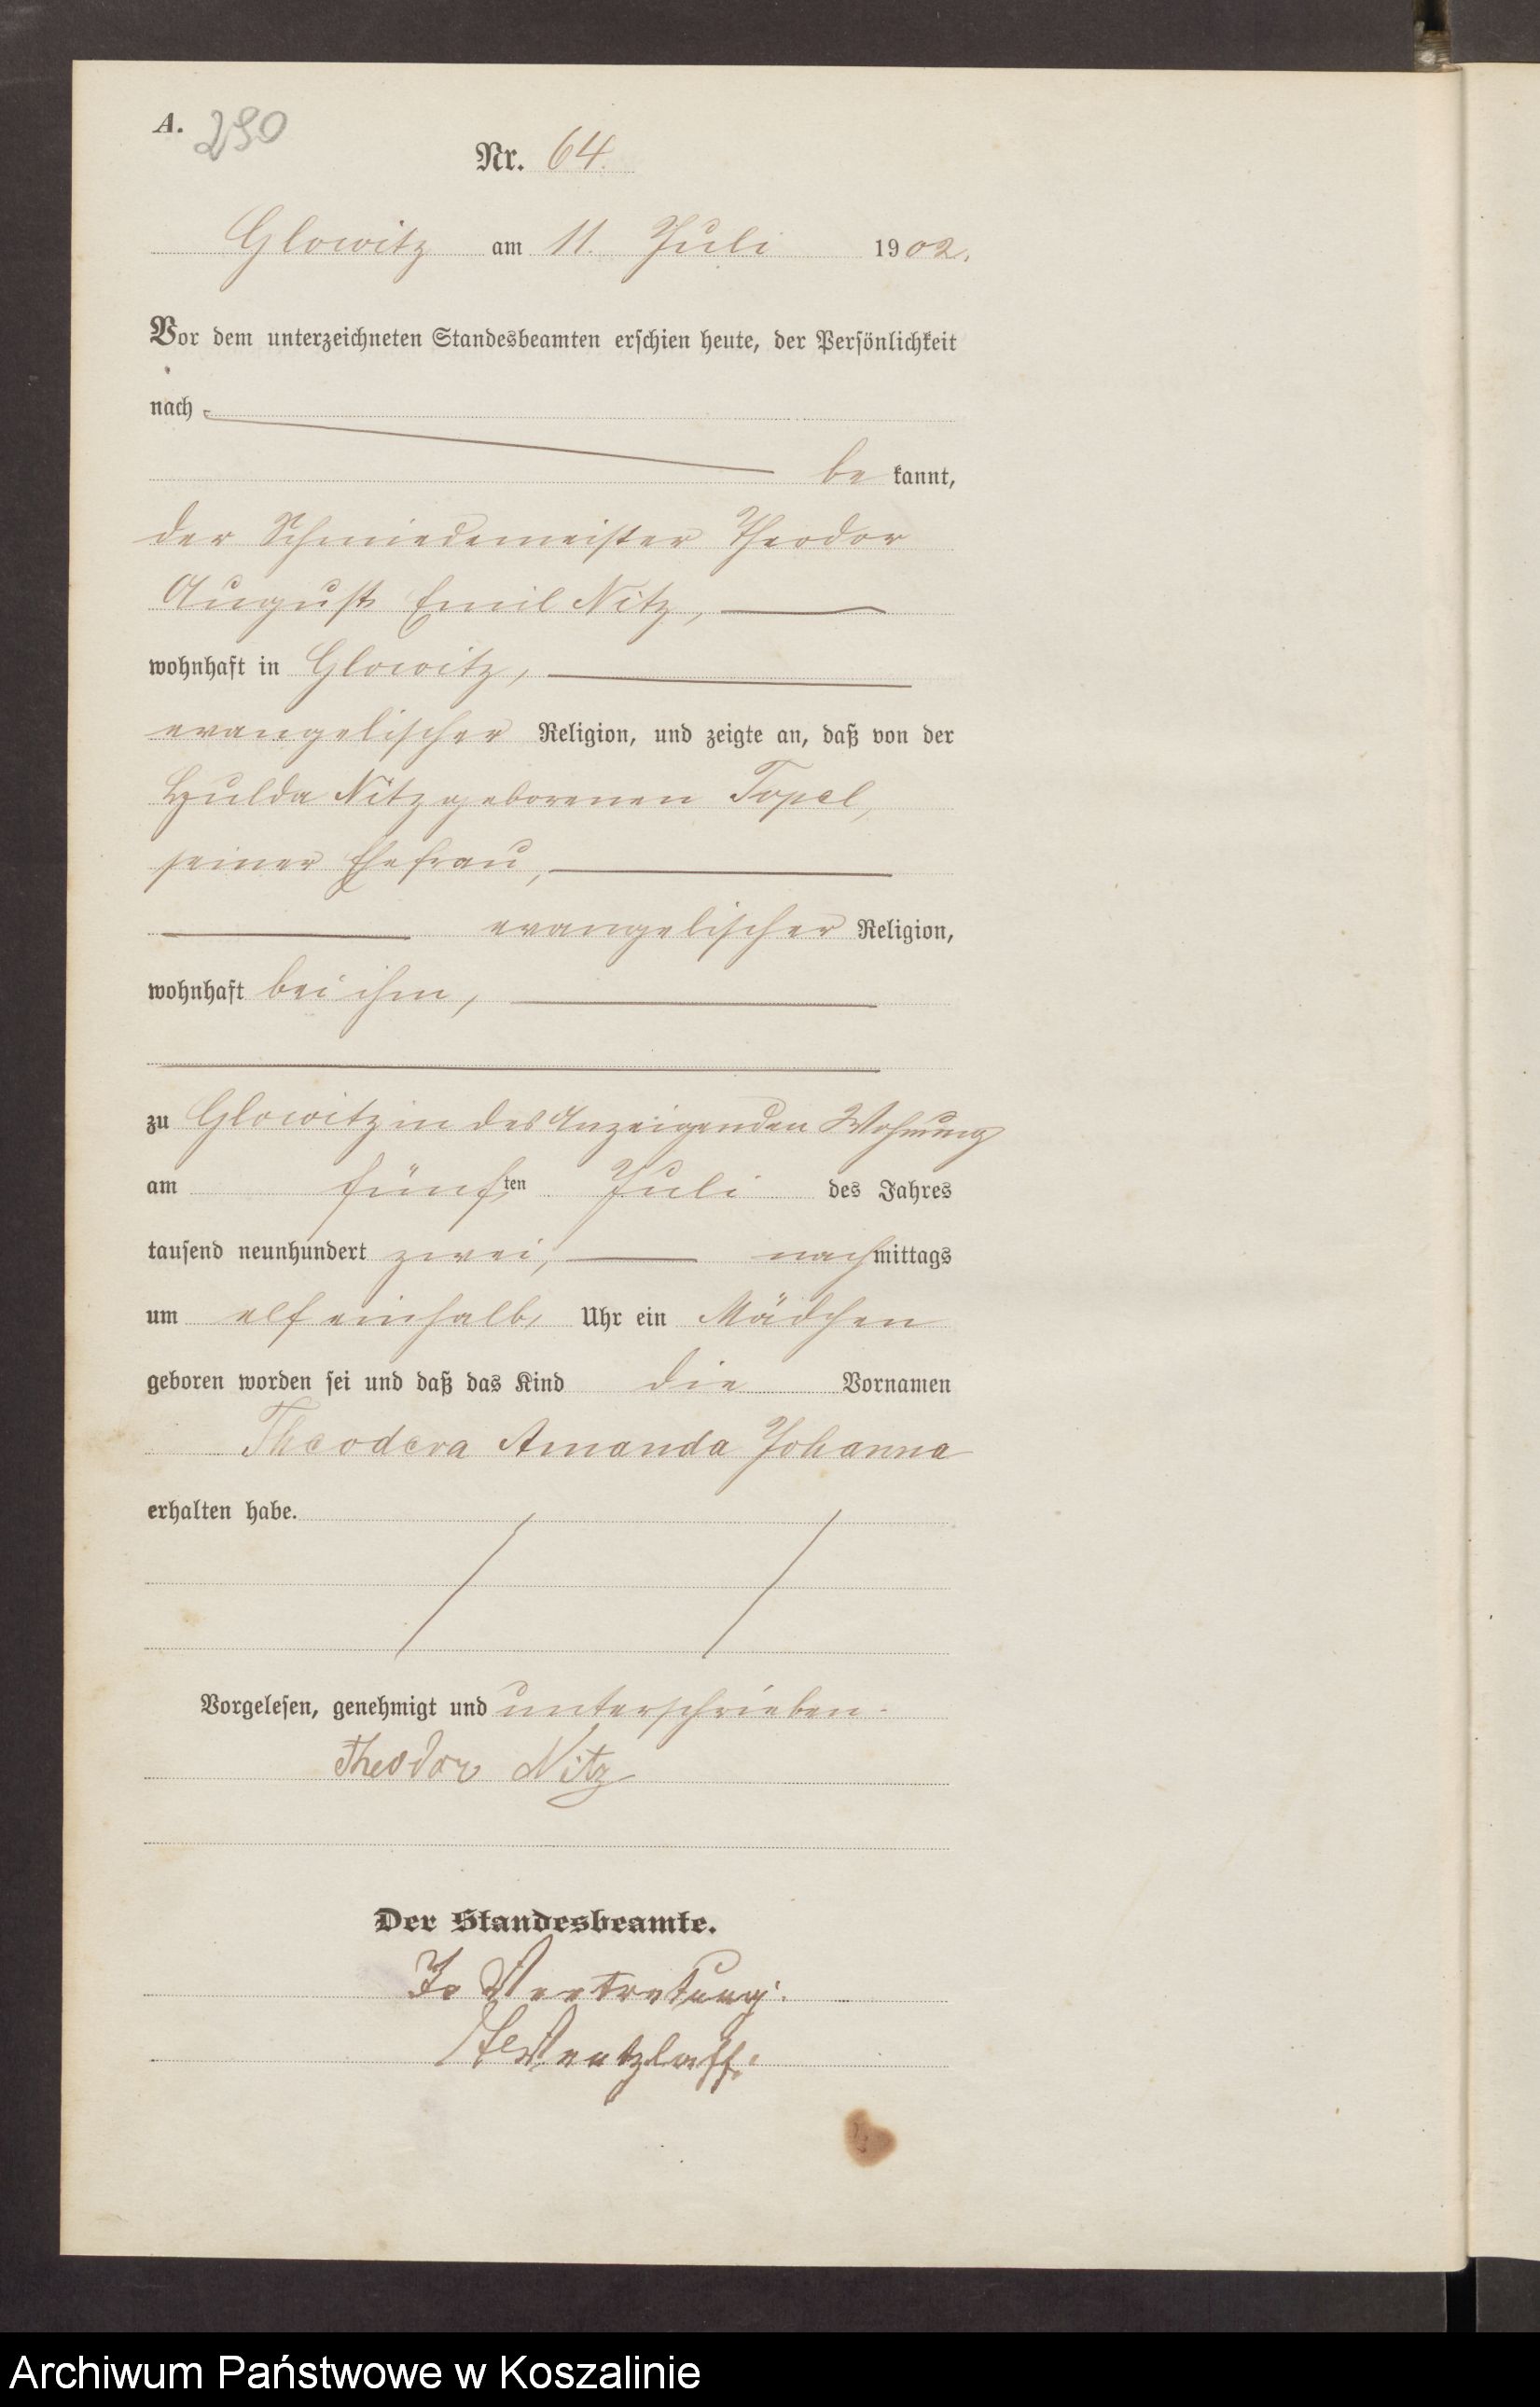 A. 290
Nr. 64.
Glowitz am 11. Juli 1902.
Vor dem unterzeichneten Standesbeamten erschien heute, der Persönlichkeit
nach
be kannt,
der Schmiedemeister Theodor
August Emil Nitz,
wohnhaft in Glowitz,
evangelischer Religion, und zeigte an, daß von der
Hulda Nitz geborenen Topel,
seiner Ehefrau,
evangelischer Religion,
wohnhaft bei ihm,
zu Glowitz in des Anzeigenden Wohnung
am fünften Juli des Jahres
tausend neunhundert zwei, nachmittags
um elf einhalb Uhr ein Mädchen
geboren worden sei und daß das Kind die Vornamen
Theodora Amanda Johanna
erhalten habe.
Vorgelesen, genehmigt und unterschrieben.
Theodor Nitz
Der Standesbeamte.
In Vertretung.
Wentzlaff.
Archiwum Państwowe w Koszalinie